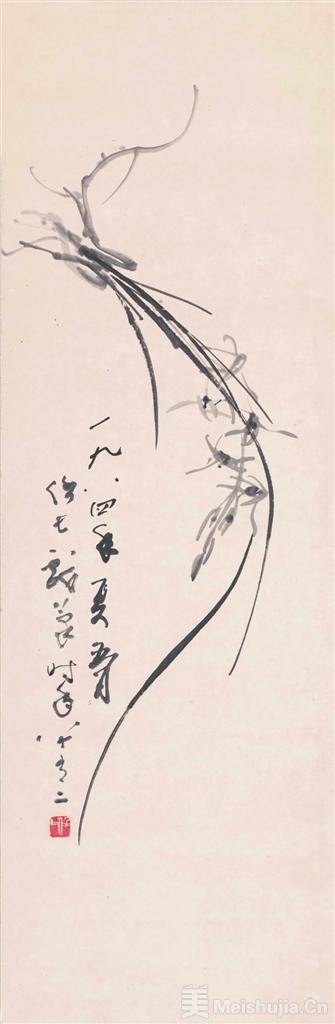 一九八四年夏五月
时年八十有二
美 Meishujia.Cn